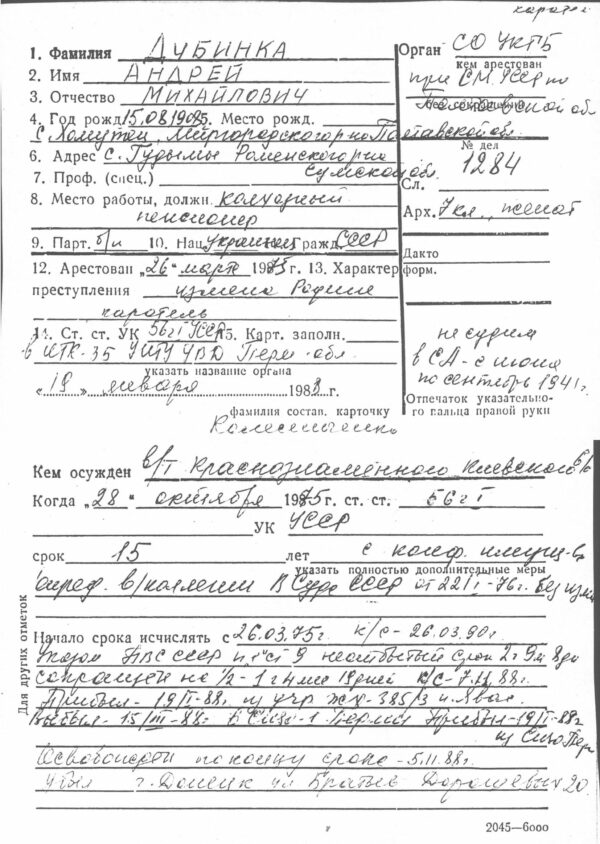 каратель
1. Фамилия ДУБИНКА
2. Имя АНДРЕЙ
3. Отчество МИХАЙЛОВИЧ
4. Год рожд 15.08.19 5. Место рожд.
с. Хомутец, Миргородского р-на Полтавской обл.
6. Адрес с. Гудымы Роменского р-на
Сумской обл.
7. Проф. (спец.)
8. Место работы, должн. колхозный
пенсионер
9. Парт. б/п 10. Нац украинец Гражд. СССР
12. Арестован „26“ марта 1975 г. 13. Характер
преступления измена Родине
каратель
14. Ст. ст. УК 56 ч I УССР 15. Карт. заполн.
в ИТК-35 УИТУ УВД Перм. обл.
указать название органа
„19„ января 1983 г.
фамилия состав. карточку
Орган СО УКГБ
кем арестован
при СМ УССР по
Полтавской обл
№ дел
1284
Сл.
Арх. 7 кл., женат
Дакто
форм.
не судим
в СА - с июня
по сентябрь 1941 г.
Отпечаток указательно-
го пальца правой руки
Кем осужден в/т Краснознамённого Киевского в/о
Когда „28“ октября 1975 г. ст. ст. 56 ч I
УК УССР
срок 15 лет с конф. имущ-ва
указать полностью дополнительные меры
опред. в/коллегии В Суда СССР от 22/I-76 г. без изм
Для других отметок
Начало срока исчислять с 26.03.75г. к/с - 26.03.90г.
Указом ПВС СССР неотбытый срок 2 г 9 м 8 дн
сокращен на 1/2 - 1 г 4 м 19 дней к/с - 7.11.88г.
Прибыл - 19/II-88г. из учр ЖХ-385/3 п. Явас.
Выбыл - 15/III-88г. в Сизо-1 Перми Прибыл - 19/ -88г
из Сизо Перм
Освобожден по концу срока - 5.11.88г.
Убыл г. Донецк ул Братьев 20.
2045—6000